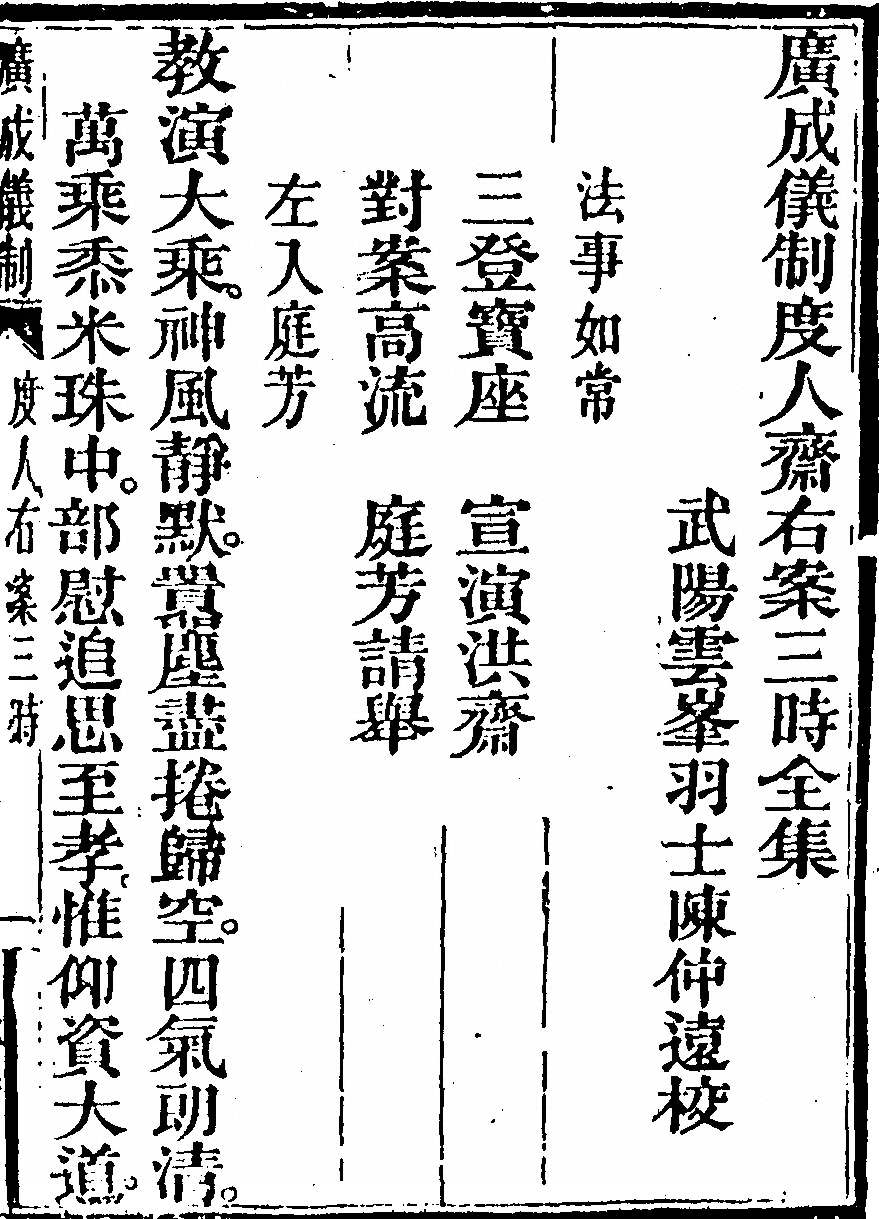 廣成儀制度人齋右案三時全集
武陽雲峯羽士陳仲遠校
法事如常
三登寶座　宣演洪齋
對案高流　庭芳請舉
左入庭芳
教演大乘。神風靜默。囂塵盡捲歸空。四氣朗清。
萬乘黍米珠中。部慰追思至孝。惟仰資大道。
廣成儀制　度人右案三時　一